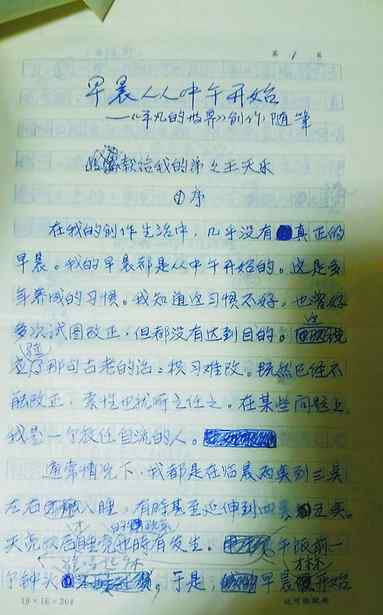 第 1 页
早晨从中午开始
——《平凡的世界》创作随笔
献给我的弟弟王天乐
①序
在我的创作生活中，几乎没有真正的
早晨。我的早晨都是从中午开始的。这是多
年养成的习惯。我知道这习惯不好，也曾好
多次试图改正，但都没有达到目的。这
应了那句古老的话：积习难改。既然已经不
能改正，索性也就听之任之。在某些问题上，
我是一个放任自流的人。
通常情况下，我都是在临晨两点到三点
左右入睡，有时甚至延伸到四点五点。
天亮以后才睡觉的现象也时有发生。午饭前一
个钟头于是，早晨开始